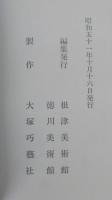 昭和五十一年十月十六日発行
編集発行 根津美術館
徳川美術館
製作 大塚巧藝社